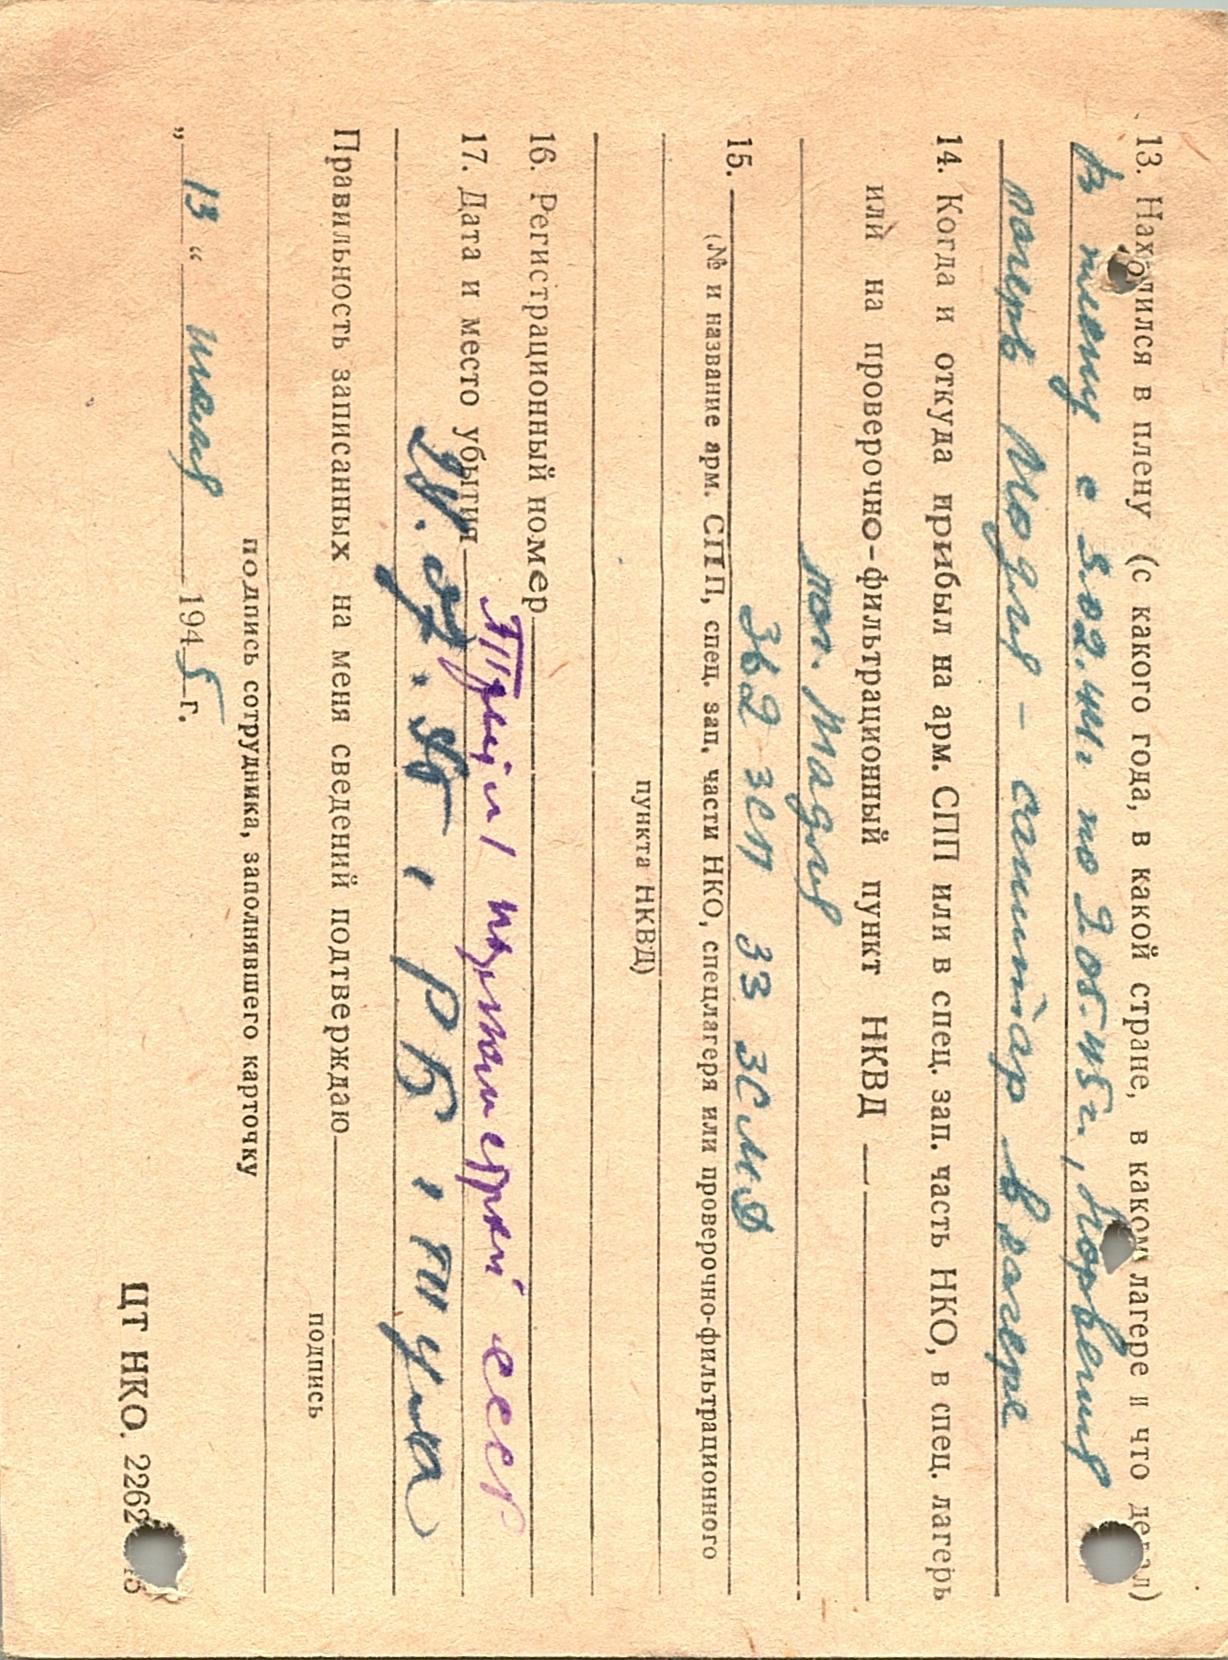 13. Находился в плену (с какого года, в какой стране, в каком лагере и что делал)
В плену с 5.02.44. по 2.05.45 г., Норвегия
лагерь Модия – санитар в лагере
14. Когда и откуда прибыл на арм. СПП или в спец. зап. часть НКО, в спец. лагерь
или на проверочно-фильтрационный пункт НКВД
лаг. Мадия
15. 362 ЗСП 33 ЗСМД
(№ и название арм. СПП, спец. зап. части НКО, спецлагеря или проверочно-фильтрационного
пункта НКВД)
16. Регистрационный номер
СССР
17. Дата и место убытия
45, РБ,
Правильность записанных на меня сведений подтверждаю
подпись
подпись сотрудника, заполнявшего карточку
„13“ июля 1945 г.
ЦТ НКО. 2262